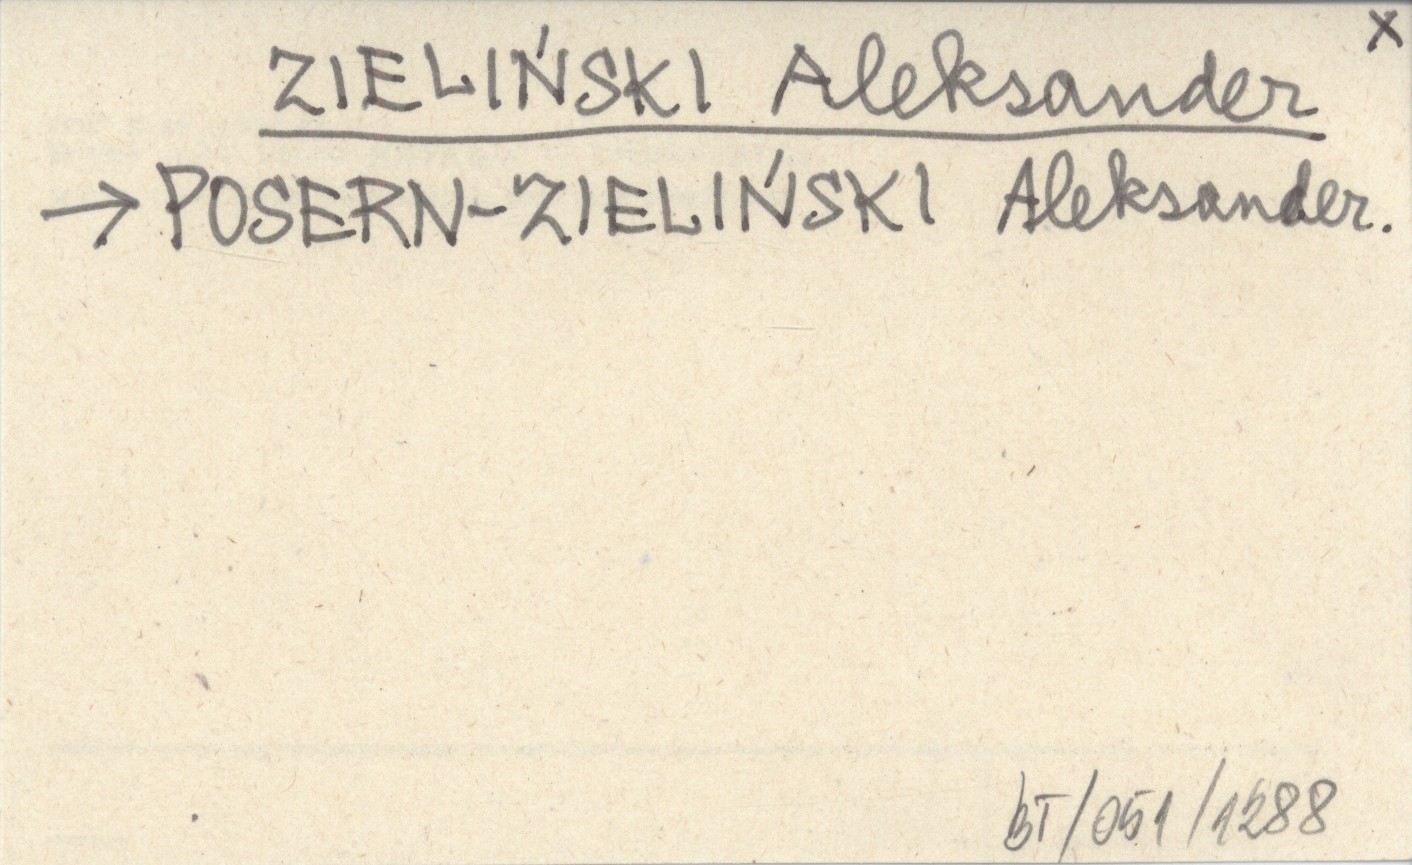 X
ZIELIŃSKI Aleksander
→ POSERN-ZIELIŃSKI Aleksander.
BT/051/1288